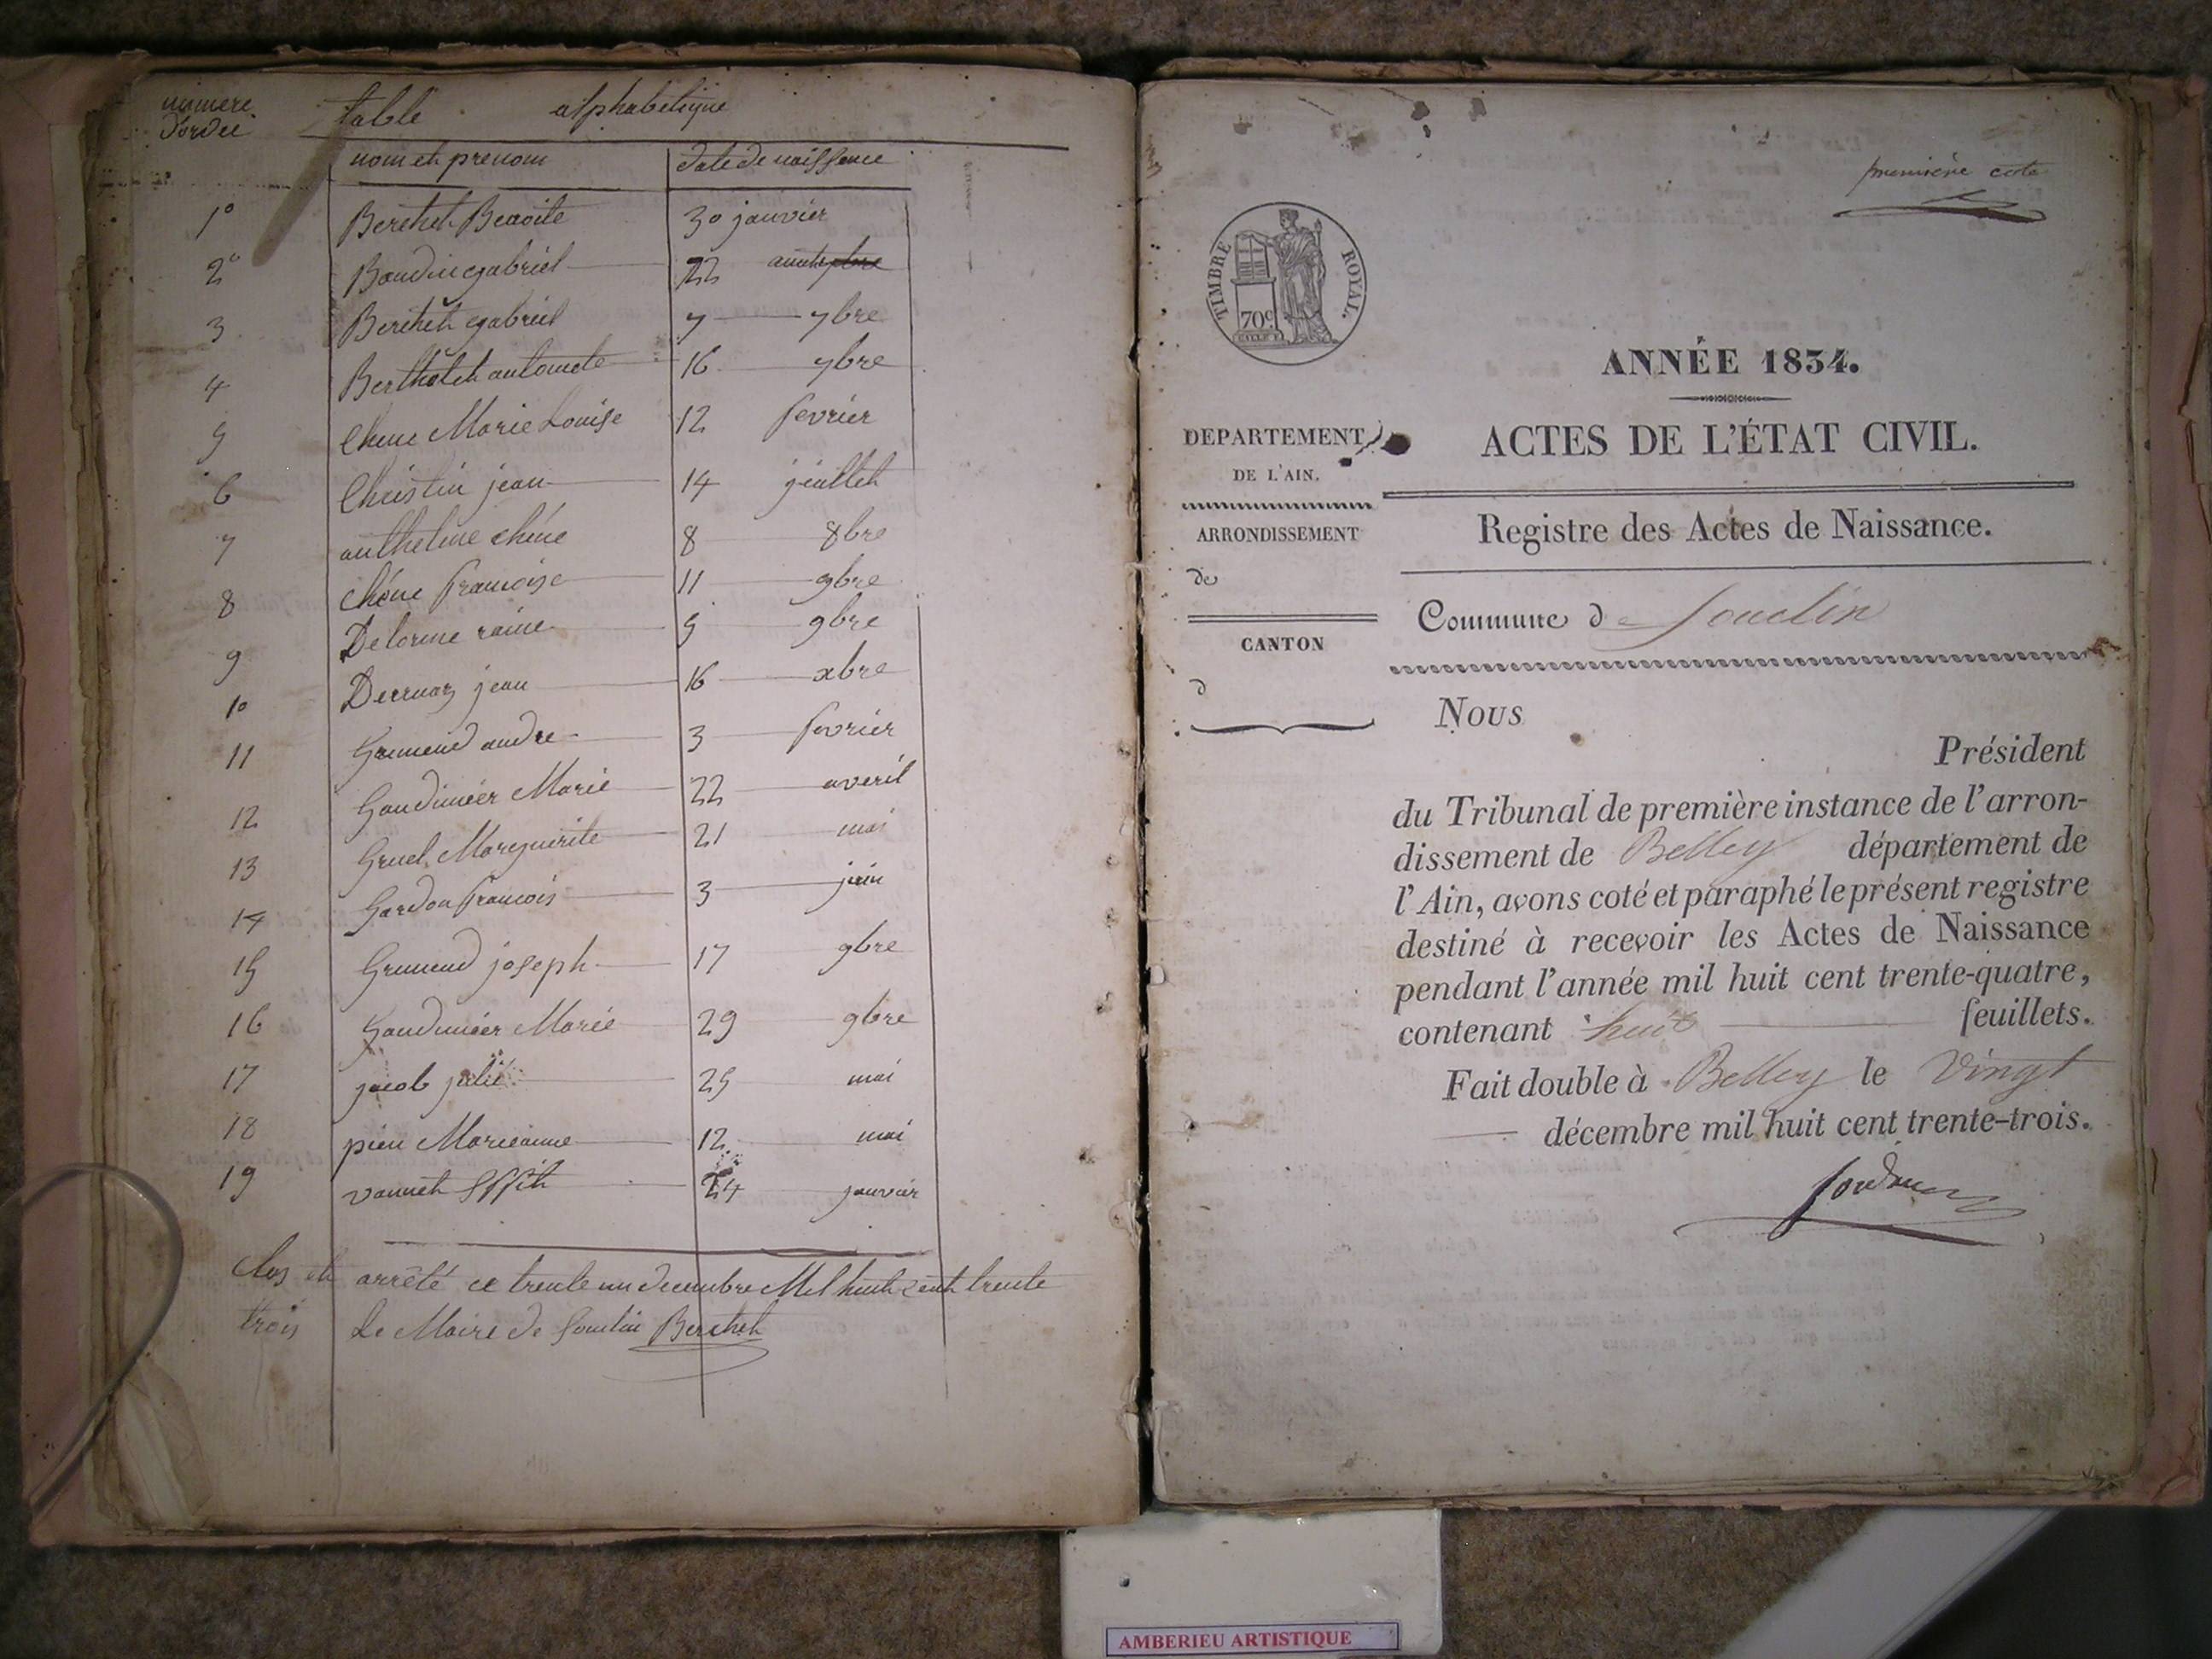 numero d'ordre
table alphabetique
nom et prenom date de naissance
1° Berthet Benoite 30 janvier
2° Baudin gabriel 22 aout
3 Berthet gabriel 7 7bre
4 Berthelet antoinete 16 7bre
5 Chene Marie Louise 12 fevrier
6 Christin jean 14 juillet
7 antheline chéne 8 8bre
8 chéne francoise 11 9bre
9 Delorme 5 9bre
10 jean 16 xbre
11 andre 3 fevrier
12 Marie 22 averil
13 Gruel Marguerite 21 mai
14 Gardon francois 3 juin
15 joseph 17 9bre
16 Marie 29 9bre
17 jacob julie 25 mai
18 Marieanne 12 mai
19 24 janvier
Clos et arrêté ce trente un decembre Mil huit cent trente
trois Le Maire de Souclin Berthet
première cote
TIMBRE ROYAL.
70c
ANNÉE 1834.
ACTES DE L'ÉTAT CIVIL.
DEPARTEMENT
DE L'AIN.
ARRONDISSEMENT
de
CANTON
d
Registre des Actes de Naissance.
Commune de Souclin
Nous
Président
du Tribunal de première instance de l'arron-
dissement de Belley département de
l'Ain, avons coté et paraphé le présent registre
destiné à recevoir les Actes de Naissance
pendant l'année mil huit cent trente-quatre,
contenant huit feuillets.
Fait double à Belley le Vingt
décembre mil huit cent trente-trois.
AMBERIEU ARTISTIQUE